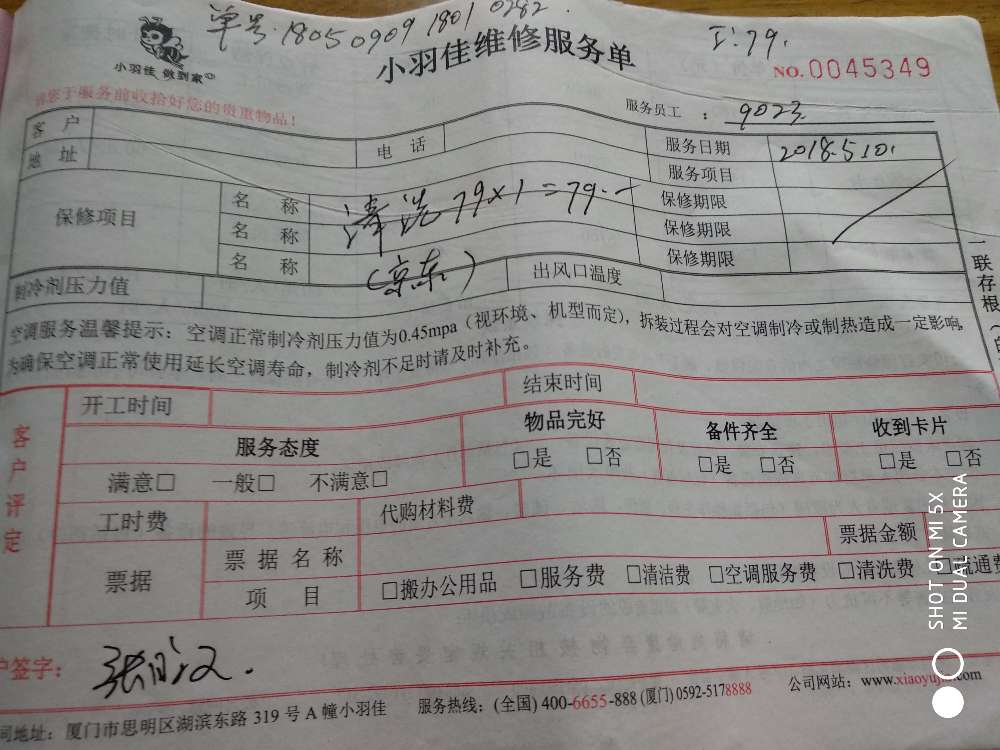 单号·18050909 1801 0282.
工:79.
小羽佳 做到家
小羽佳维修服务单
NO.0045349
请您于服务前收拾好您的贵重物品!
服务员工 : 9023
客 户
电 话
服务日期 2018.5.10.
地 址
服务项目
保修项目
名 称 清洗 79×1=79.-
保修期限
名 称
保修期限
名 称 (京东)
保修期限
制冷剂压力值
出风口温度
一联存根
空调服务温馨提示:空调正常制冷剂压力值为0.45mpa(视环境、机型而定),拆装过程会对空调制冷或制热造成一定影响,
为确保空调正常使用延长空调寿命,制冷剂不足时请及时补充。
客户评定
开工时间
结束时间
服务态度
物品完好
备件齐全
收到卡片
满意□ 一般□ 不满意□
□是 □否
□是 □否
□是 □否
工时费
代购材料费
票据
票据名称
票据金额
项 目
□搬办公用品 □服务费 □清洁费 □空调服务费 □清洗费 □疏通费
户签字:
司地址:厦门市思明区湖滨东路 319 号 A 幢小羽佳
服务热线:(全国) 400-6655-888 (厦门) 0592-5178888
公司网站:www.xiaoyujia.com
SHOT ON MI 5X
MI DUAL CAMERA